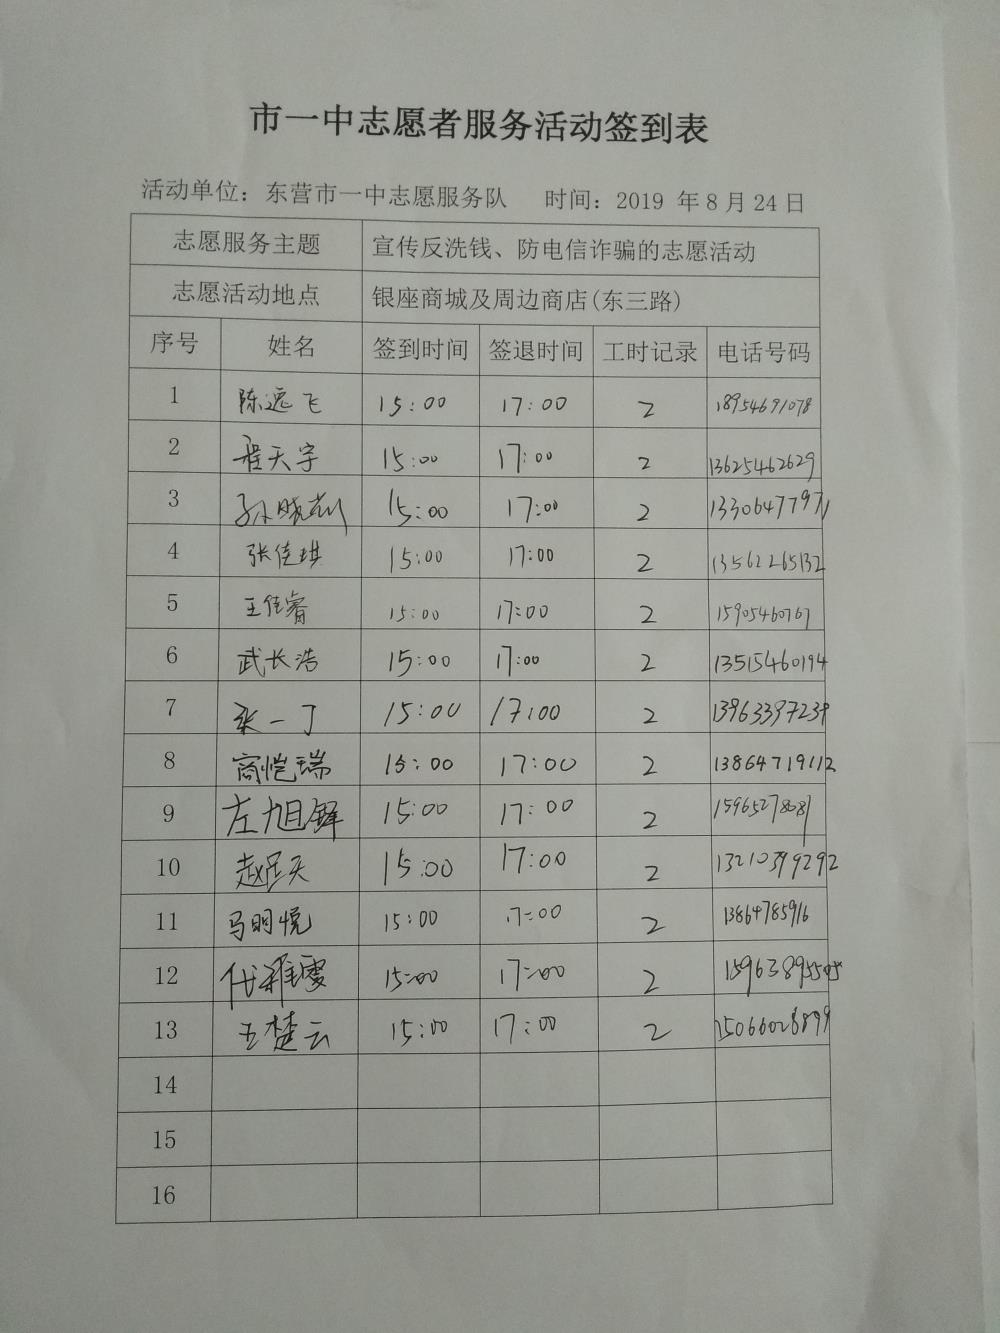 市一中志愿者服务活动签到表
活动单位：东营市一中志愿服务队 时间：2019 年8月24日
志愿服务主题 宣传反洗钱、防电信诈骗的志愿活动
志愿活动地点 银座商城及周边商店(东三路)
序号 姓名 签到时间 签退时间 工时记录 电话号码
1 陈逸飞 15:00 17:00 2 18954691078
2 翟天宇 15:00 17:00 2 13625462629
3 孙晓 15:00 17:00 2 13306477971
4 张佳琪 15:00 17:00 2 13562265132
5 王佳睿 15:00 17:00 2 15905460767
6 武长浩 15:00 17:00 2 13515460194
7 张一丁 15:00 17:00 2 13963397239
8 商恺瑞 15:00 17:00 2 13864719112
9 左旭铎 15:00 17:00 2 15965278081
10 赵天 15:00 17:00 2 13210399292
11 马明悦 15:00 17:00 2 13864785916
12 代雯 15:00 17:00 2
13 王楚云 15:00 17:00 2 15066028899
14
15
16